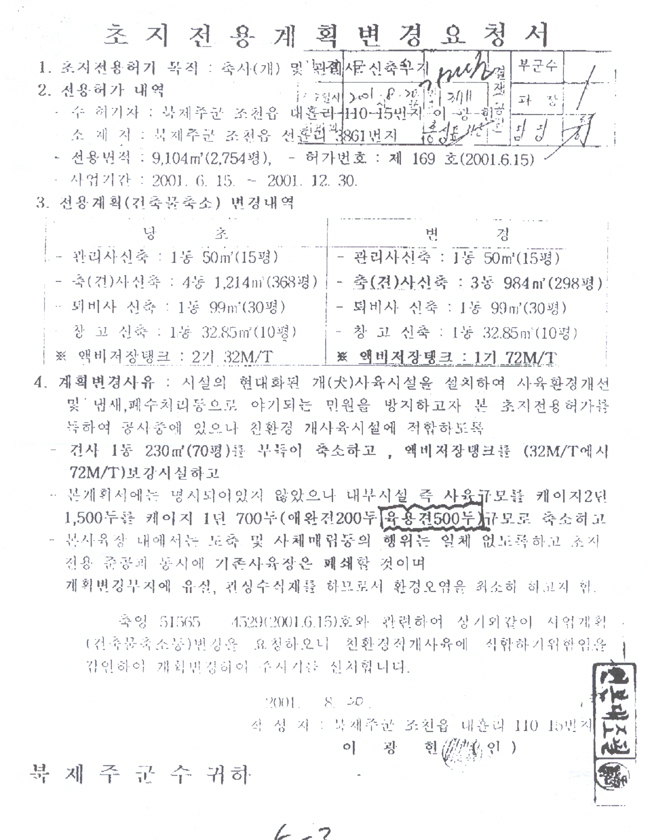 초지전용계획변경요청서
1. 초지전용허가 목적 : 축사(개) 및 관리사 신축부지
부군수
2. 전용허가 내역
2001. 8. 20
과 장
- 수 허가자 : 북제주군 조천읍 대흘리 110-15번지 이 광 현
- 소 재 지 : 북제주군 조천읍 선흘리 3861번지
- 전용면적 : 9,104㎡(2,754평), - 허가번호 : 제 169 호(2001.6.15)
- 사업기간 : 2001. 6. 15. ~ 2001. 12. 30.
3. 전용계획(건축물축소) 변경내역
당 초
변 경
- 관리사신축 : 1동 50㎡(15평)
- 관리사신축 : 1동 50㎡(15평)
- 축(견)사신축 : 4동 1,214㎡(368평)
- 축(견)사신축 : 3동 984㎡(298평)
- 퇴비사 신축 : 1동 99㎡(30평)
- 퇴비사 신축 : 1동 99㎡(30평)
- 창 고 신축 : 1동 32.85㎡(10평)
- 창 고 신축 : 1동 32.85㎡(10평)
※ 액비저장탱크 : 2기 32M/T
※ 액비저장탱크 : 1기 72M/T
4. 계획변경사유 : 시설의 현대화된 개(犬)사육시설을 설치하여 사육환경개선
및 냄새,폐수처리등으로 야기되는 민원을 방지하고자 본 초지전용허가를
득하여 공사중에 있으나 친환경 개사육시설에 적합하도록
- 견사 1동 230㎡(70평)를 부득이 축소하고 , 액비저장탱크를 (32M/T에서
72M/T)보강시설하고
- 본계획서에는 명시되어있지 않았으나 내부시설 즉 사육규모를 케이지2단
1,500두를 케이지 1단 700두(애완견200두,육용견500두)규모로 축소하고
- 본사육장 내에서는 도축 및 사체매립등의 행위는 일체 없도록하고 초지
전용 준공과 동시에 기존사육장은 폐쇄할 것이며
계획변경부지에 유실, 관상수식재를 하므로서 환경오염을 최소히 하고자 함.
축영 51565 - 4529(2001.6.15)호와 관련하여 상기와같이 사업계획
(건축물축소등)변경을 요청하오니 친환경적개사육에 적합하기위함임을
감안하여 계획변경하여 주시기를 신청합니다.
2001. 8. 20.
작 성 자 : 북제주군 조천읍 대흘리 110-15번지
이 광 현 (인)
원본대조필
북 제 주 군 수 귀하